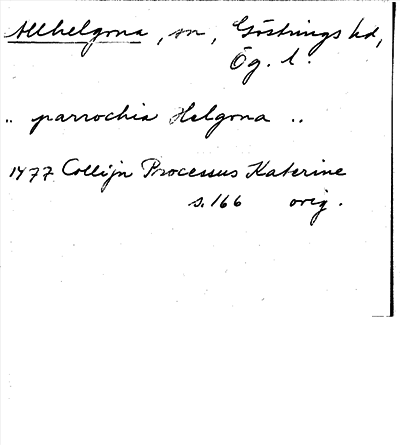 Allhelgona, sn, Göstrings hd,
Ög. l.
.. parrochia Helgona ..
1477 Collijn Processus Katerine
s. 166 orig.